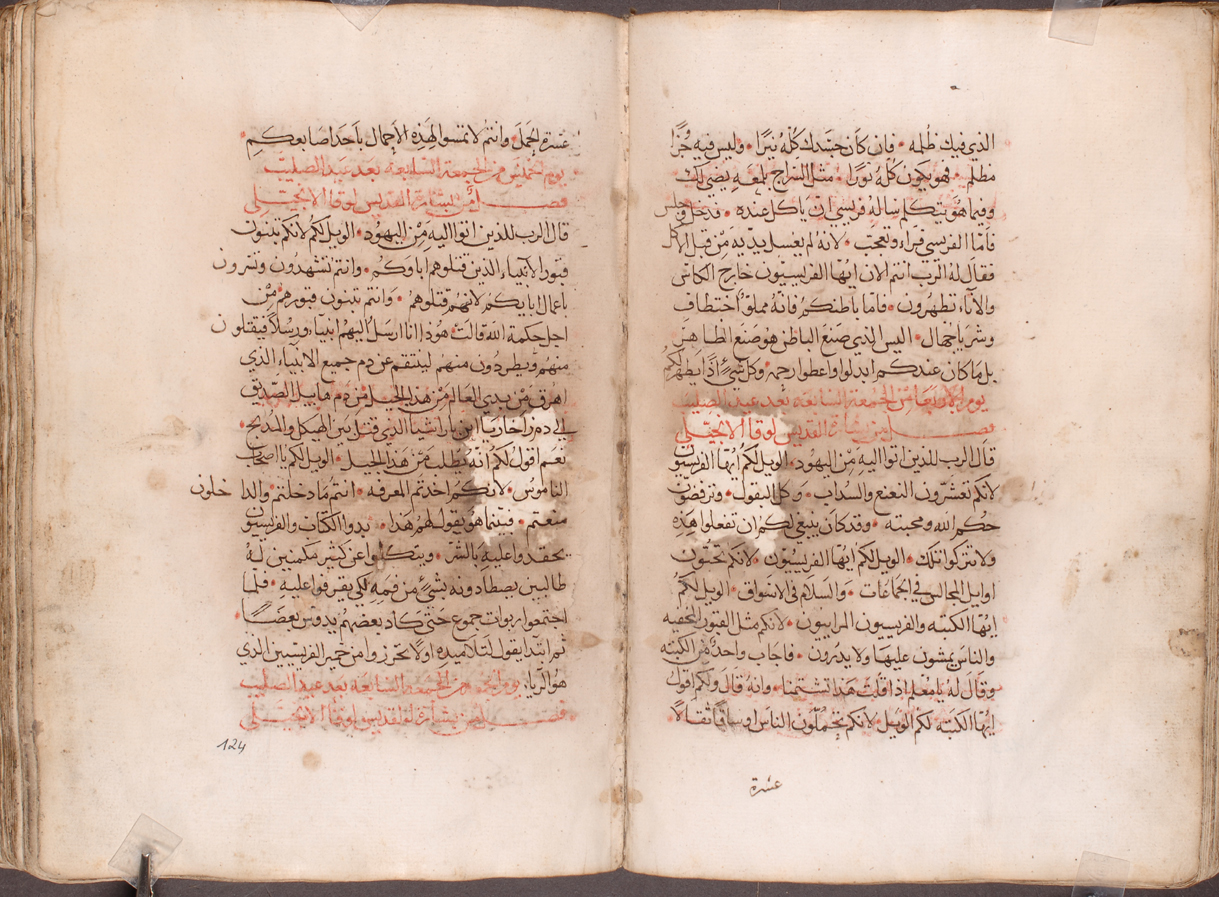 الذي فيك ظلمه • فان كان جسدك كله نيرا • وليس فيه جزا
مظلم • فهو يكون كله نورا • مثل السراج بلمعه يضي لك
وفيما هو يتكلم ساله فريسي ان ياكل عنده • فدخل وجلس
فاما الفريسي فراه وتعجب • لانه لم يغسل يديه من قبل الاكل
فقال له الرب انتم الان ايها الفريسيون خارج الكاس
والاناء تطهرون • فاما باطنكم فانه مملؤ اختطاف
وشر يا جهال • اليس الذي صنع الباطن هو صنع الظاهر
بل ما كان عندكم ابدلوا واعطوا رحمه • وكل شيء اذا يطهر لكم
يوم الاربعا من الجمعة السابعه بعد عيد الصليب
فصل من بشارة القديس لوقا الانجيلي
قال الرب للذين اتوا اليه من اليهود • الويل لكم ايها الفريسيون
لانكم تعشرون النعنع والسداب • وكل البقول • وترفضون
حكم الله ومحبته • وقد كان ينبغي لكم ان تفعلوا هذه
ولا تتركوا تلك • الويل لكم ايها الفريسيون • لانكم تحبون
اوايل المجالس في الجماعات • والسلام في الاسواق • الويل لكم
ايها الكتبه والفريسيون المراييون • لانكم مثل القبور المخفيه
والناس يمشون عليها ولا يدرون • فاجاب واحد من الكتبه
وقال له يا معلم اذا قلت هذا تشتمنا • وانه قال ولكم اقول
ايها الكتبه لكم الويل • لانكم تحملون الناس اوساقا ثقالا
عشرة
عشرة الحمل • وانتم لا تمسوا لهذه الاحمال باحد اصابعكم •
يوم الخميس من الجمعة السابعه بعد عيد الصليب
فصل من بشارة القديس لوقا الانجيلي
قال الرب للذين اتوا اليه من اليهود • الويل لكم لانكم تبنون
قبور الانبياء الذين قتلوهم اباوكم • وانتم تشهدون وتسرون
باعمال ابايكم لانهم قتلوهم • وانتم تبنون قبورهم من
اجل حكمة الله قالت • هوذا انا ارسل اليهم انبياء ورسلا فيقتلون
منهم ويطردون منهم لينتقم عن دم جميع الانبياء الذي
اهرق من بدي العالم من هذا الجيل من دم هابيل الصديق
الي دم زاخاريا ابن باراشيا الذي قتل بين الهيكل والمذبح •
نعم اقول لكم انه يطلب من هذا الجيل • الويل لكم يا اصحاب
الناموس • لانكم اخدتم المعرفه • انتم ما دخلتم • والداخلون
منعتم • فبينما هو يقول لهم هذا • بدوا الكتاب والفريسيون
يحقدوا عليه بالشر • ويتكلموا عن كثير مكمنين له
طالبين يصطادونه بشيء من فمه لكي يقرفوا عليه • فلما
اجتمعوا ربوات جموع حتي كاد بعضهم يدوس بعضا •
ثم ابتدا يقول لتلاميده اولا تحرزوا من خمير الفريسيين الذي
هو الريا • يوم الجمعه من الجمعة السابعه بعد عيد الصليب
فصل من بشارة القديس لوقا الانجيلي
124